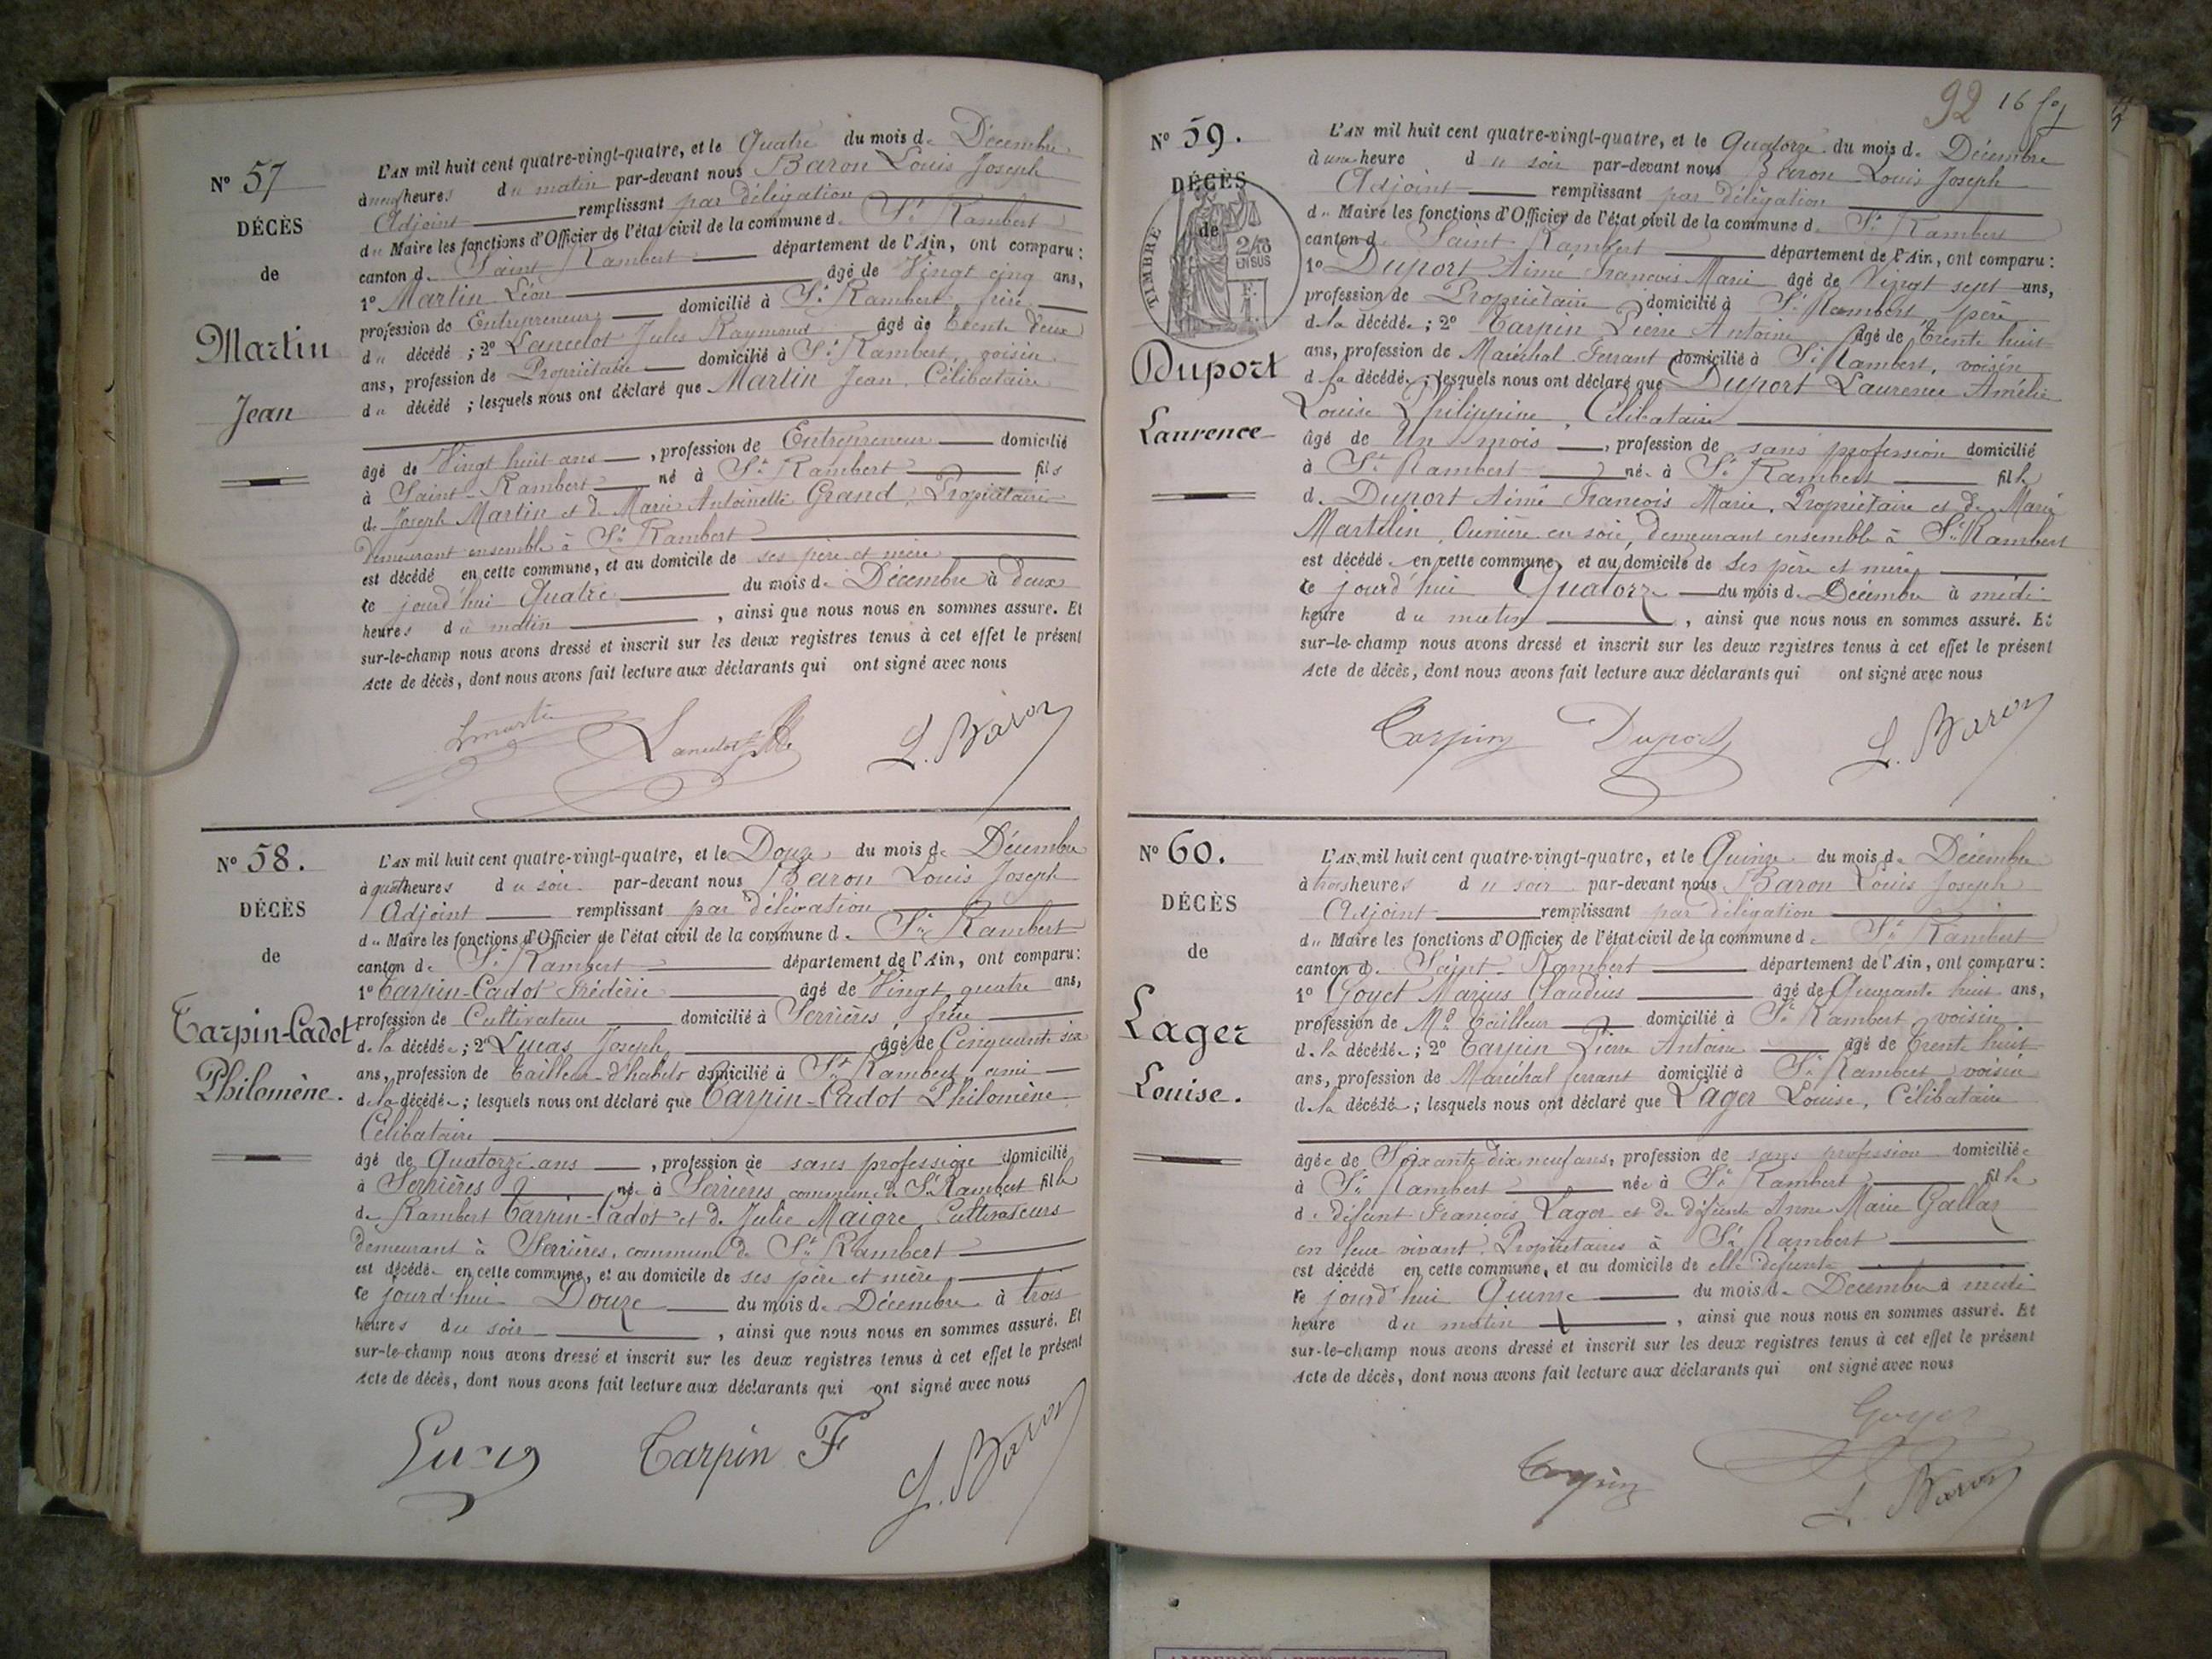 N° 57
DÉCÈS
de
Martin
Jean
L'AN mil huit cent quatre-vingt-quatre, et le Quatre du mois de Décembre
à neuf heures du matin par-devant nous Baron Louis Joseph
Adjoint remplissant par délégation
du Maire les fonctions d'Officier de l'état civil de la commune de St Rambert
canton de Saint Rambert département de l'Ain, ont comparu :
1° Martin Léon âgé de Vingt cinq ans,
profession de Entrepreneur domicilié à St Rambert, frère
du décédé ; 2° Lancelot Jules Raymond âgé de trente deux
ans, profession de Propriétaire domicilié à St Rambert, voisin
du décédé ; lesquels nous ont déclaré que Martin Jean, Célibataire
âgé de Vingt huit ans, profession de Entrepreneur domicilié
à Saint-Rambert né à St Rambert fils
de Joseph Martin et de Marie Antoinette Grand, Propriétaires
demeurant ensemble à St Rambert
est décédé en cette commune, et au domicile de ses père et mère
ce jourd'hui Quatre du mois de Décembre à deux
heures du matin, ainsi que nous nous en sommes assuré. Et
sur-le-champ nous avons dressé et inscrit sur les deux registres tenus à cet effet le présent
Acte de décès, dont nous avons fait lecture aux déclarants qui ont signé avec nous
Lmartin Lancelot L. Baron
N° 58.
DÉCÈS
de
Tarpin-Cadot
Philomène.
L'AN mil huit cent quatre-vingt-quatre, et le Douze du mois de Décembre
à quatre heures du soir par-devant nous Baron Louis Joseph
Adjoint remplissant par délégation
du Maire les fonctions d'Officier de l'état civil de la commune de St Rambert
canton de St Rambert département de l'Ain, ont comparu :
1° Tarpin-Cadot Frédéric âgé de Vingt quatre ans,
profession de Cultivateur domicilié à Serrières, frère
de la décédée ; 2° Lucas Joseph âgé de Cinquante six
ans, profession de Tailleur-d'habits domicilié à St Rambert, ami
de la décédée ; lesquels nous ont déclaré que Tarpin-Cadot Philomène
Célibataire
âgé de Quatorze ans, profession de sans profession domicilié
à Serrières née à Serrières, commune de St Rambert fille
de Rambert Tarpin-Cadot et de Julie Maigre, Cultivateurs
demeurant à Serrières, commune de St Rambert
est décédée en cette commune, et au domicile de ses père et mère,
ce jourd'hui Douze du mois de Décembre à trois
heures du soir, ainsi que nous nous en sommes assuré. Et
sur-le-champ nous avons dressé et inscrit sur les deux registres tenus à cet effet le présent
Acte de décès, dont nous avons fait lecture aux déclarants qui ont signé avec nous
Lucas Tarpin F L. Baron
92 16
N° 59.
DÉCÈS
de
TIMBRE
2/10
EN SUS
Duport
Laurence
L'AN mil huit cent quatre-vingt-quatre, et le Quatorze du mois de Décembre
à une heure du soir par-devant nous Baron Louis Joseph
Adjoint remplissant par délégation
du Maire les fonctions d'Officier de l'état civil de la commune de St Rambert
canton de Saint Rambert département de l'Ain, ont comparu :
1° Duport Aimé François Marie âgé de Vingt sept ans,
profession de Propriétaire domicilié à St Rambert, père
de la décédée ; 2° Tarpin Pierre Antoine âgé de trente huit
ans, profession de Maréchal Ferrant domicilié à St Rambert, voisin
de la décédée ; lesquels nous ont déclaré que Duport Laurence Amélie
Louise Philippine, Célibataire
âgé de Un mois, profession de sans profession domicilié
à St Rambert née à St Rambert fille
de Duport Aimé François Marie, Propriétaire et de Marie
Martelin, Ouvrière en soie, demeurant ensemble à St Rambert
est décédée en cette commune, et au domicile de ses père et mère,
ce jourd'hui Quatorze du mois de Décembre à midi
heure du matin, ainsi que nous nous en sommes assuré. Et
sur-le-champ nous avons dressé et inscrit sur les deux registres tenus à cet effet le présent
Acte de décès, dont nous avons fait lecture aux déclarants qui ont signé avec nous
Tarpin Duport L. Baron
N° 60.
DÉCÈS
de
Lager
Louise.
L'AN mil huit cent quatre-vingt-quatre, et le Quinze du mois de Décembre
à trois heures du soir par-devant nous Baron Louis Joseph
Adjoint remplissant par délégation
du Maire les fonctions d'Officier de l'état civil de la commune de St Rambert
canton de Saint-Rambert département de l'Ain, ont comparu :
1° Goyet Marius Claudius âgé de Quarante huit ans,
profession de Md Tailleur domicilié à St Rambert, voisin
de la décédée ; 2° Tarpin Pierre Antoine âgé de trente huit
ans, profession de Maréchal ferrant domicilié à St Rambert, voisin
de la décédée ; lesquels nous ont déclaré que Lager Louise, Célibataire
âgée de Soixante dix neuf ans, profession de sans profession domiciliée
à St Rambert née à St Rambert fille
de défunt François Lager et de défunte Anne Marie Gallay
en leur vivant Propriétaires à St Rambert
est décédé en cette commune, et au domicile de elle défunte
ce jourd'hui Quinze du mois de Décembre à midi
heure du matin, ainsi que nous nous en sommes assuré. Et
sur-le-champ nous avons dressé et inscrit sur les deux registres tenus à cet effet le présent
Acte de décès, dont nous avons fait lecture aux déclarants qui ont signé avec nous
Goyet
Tarpin
L. Baron